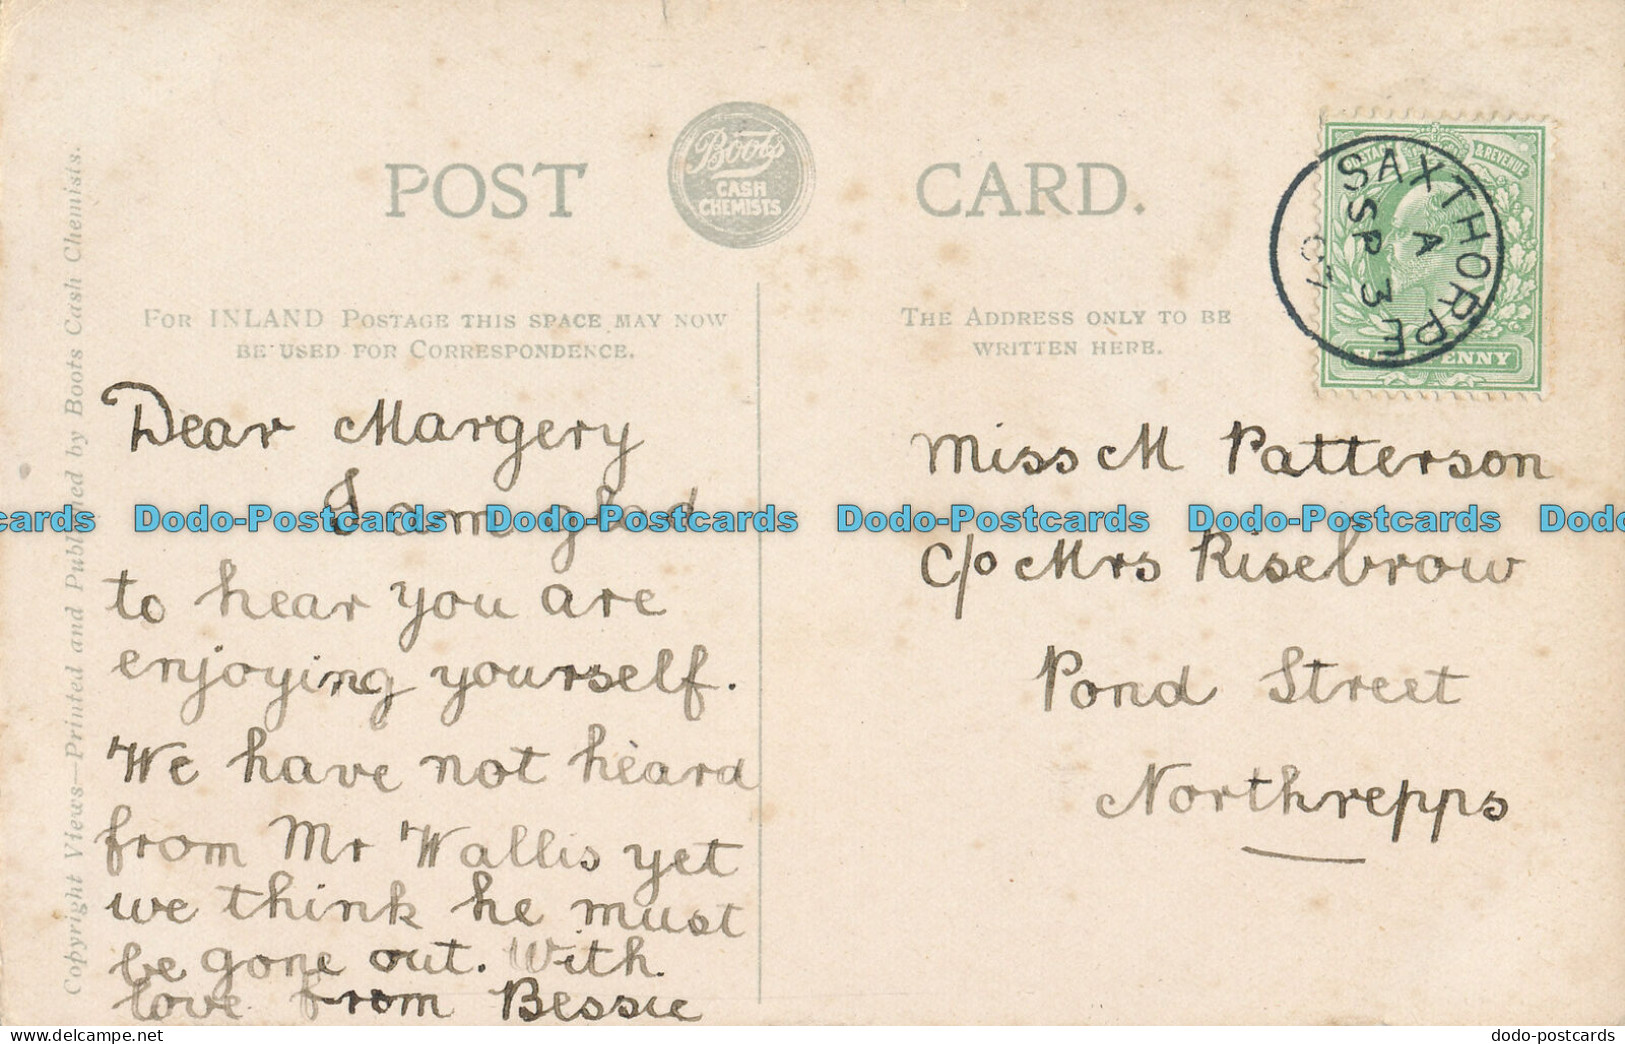 POST CARD.
Boots
CASH
CHEMISTS
FOR INLAND POSTAGE THIS SPACE MAY NOW
BE USED FOR CORRESPONDENCE.
THE ADDRESS ONLY TO BE
WRITTEN HERE.
POSTAGE & REVENUE
HALFPENNY
SAXTHORPE
A
SP 3
07
Copyright Views—Printed and Published by Boots Cash Chemists.
Dear Margery
I am glad
to hear you are
enjoying yourself.
We have not heard
from Mr Wallis yet
we think he must
be gone out. With
love from Bessie
Miss M Patterson
c/o Mrs Risebrow
Pond Street
Northrepps
cards Dodo-Postcards Dodo-Postcards Dodo-Postcards Dodo-Postcards Dodo
dodo-postcards.com